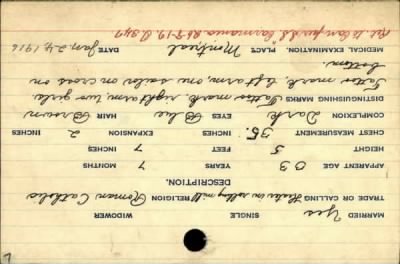 MARRIED Yes SINGLE WIDOWER
TRADE OR CALLING Heater in rolling mill RELIGION Roman Catholic
DESCRIPTION.
APPARENT AGE 33 YEARS 7 MONTHS
HEIGHT 5 FEET 7 INCHES
CHEST MEASUREMENT 35. INCHES EXPANSION 2
COMPLEXION Dark EYES Blue HAIR Brown
DISTINGUISHING MARKS Tattoo mark, right arm, two girls.
Tattoo mark, left arm, one sailor on cross on
bottom.
MEDICAL EXAMINATION. PLACE Montreal DATE Jan. 24. 1916
to Can. per S.S. Carmania